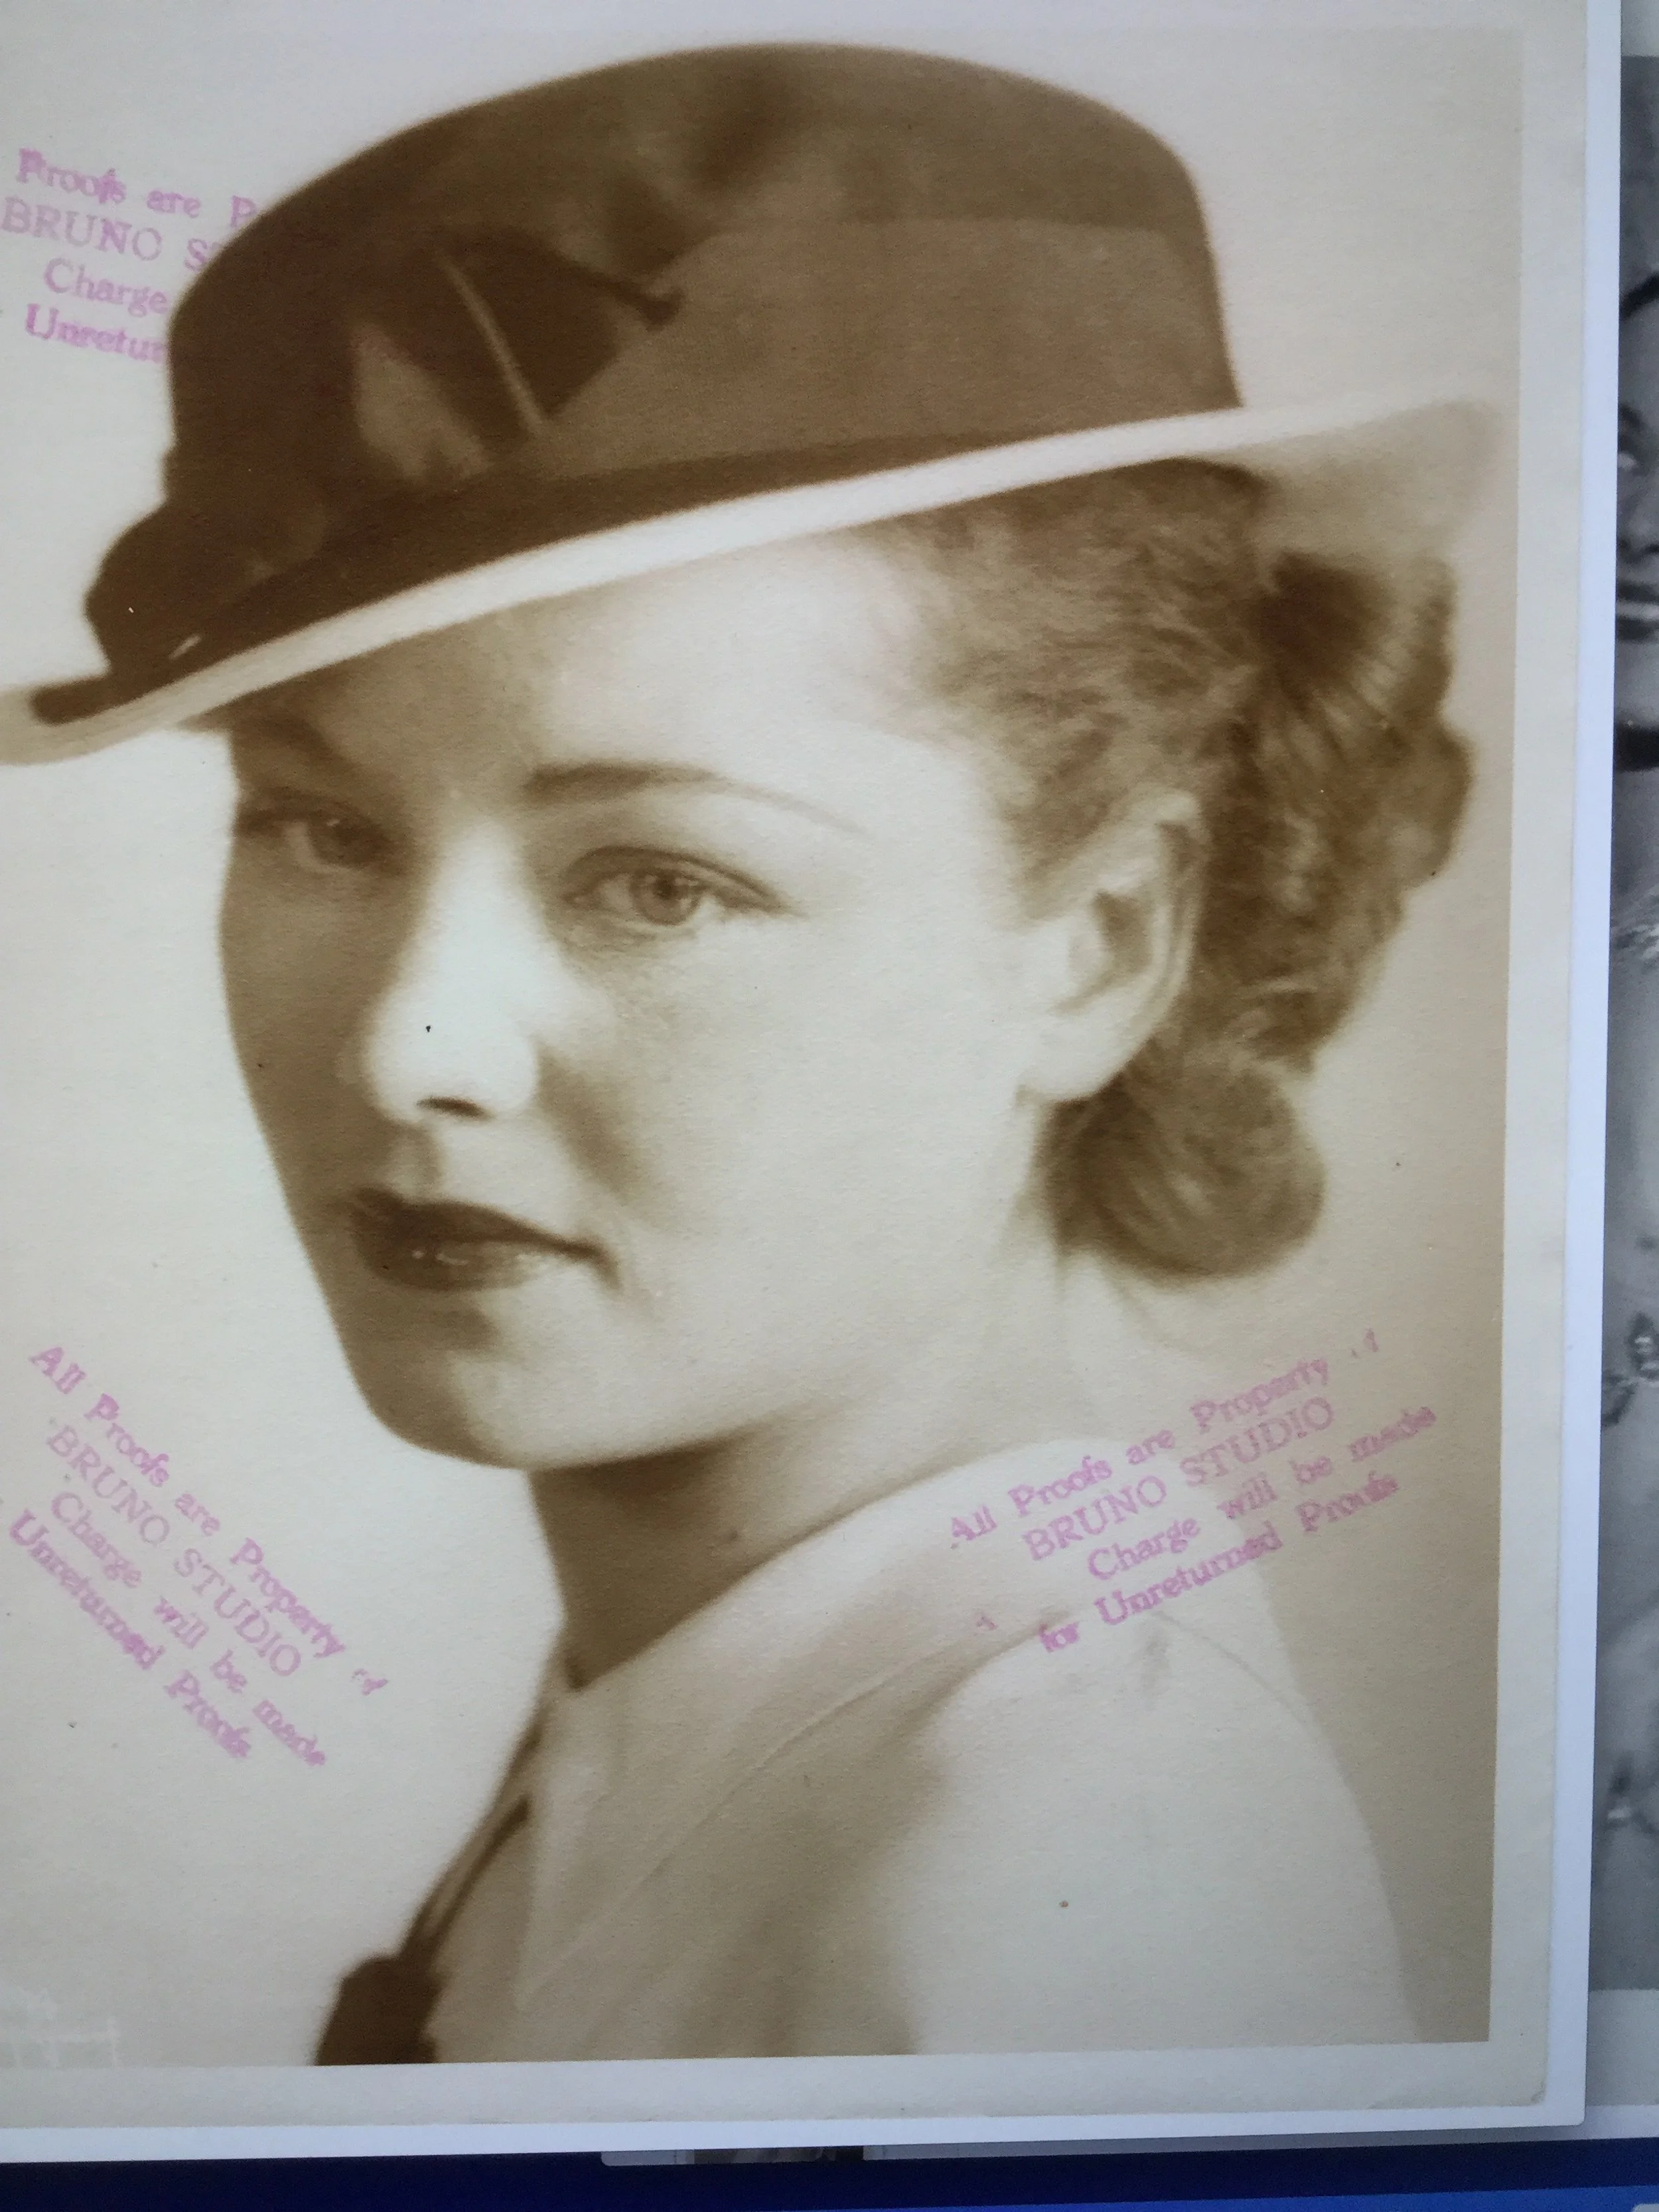 Proofs are
BRUNO
Charge
All Proofs are Property of
BRUNO STUDIO
Charge will be made
Unreturned Proofs
All Proofs are Property of
BRUNO STUDIO
Charge will be made
for Unreturned Proofs